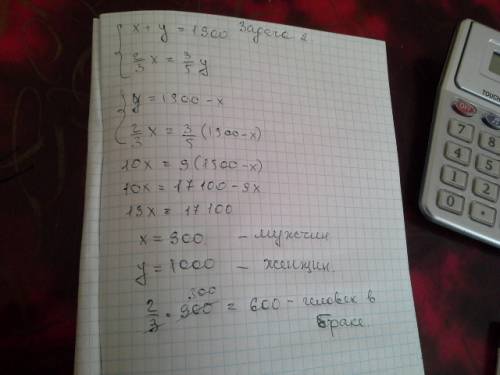 x + y = 1900 Задача 2.
2/3 x = 3/5 y
y = 1900 - x
2/3 x = 3/5 (1900 - x)
10x = 9(1900 - x)
10x = 17100 - 9x
19x = 17100
x = 900 - мужчин
y = 1000 - женщин.
2/3 · 900 300 = 600 - человек в
браке.
7 8
4 5
1 2
0 .